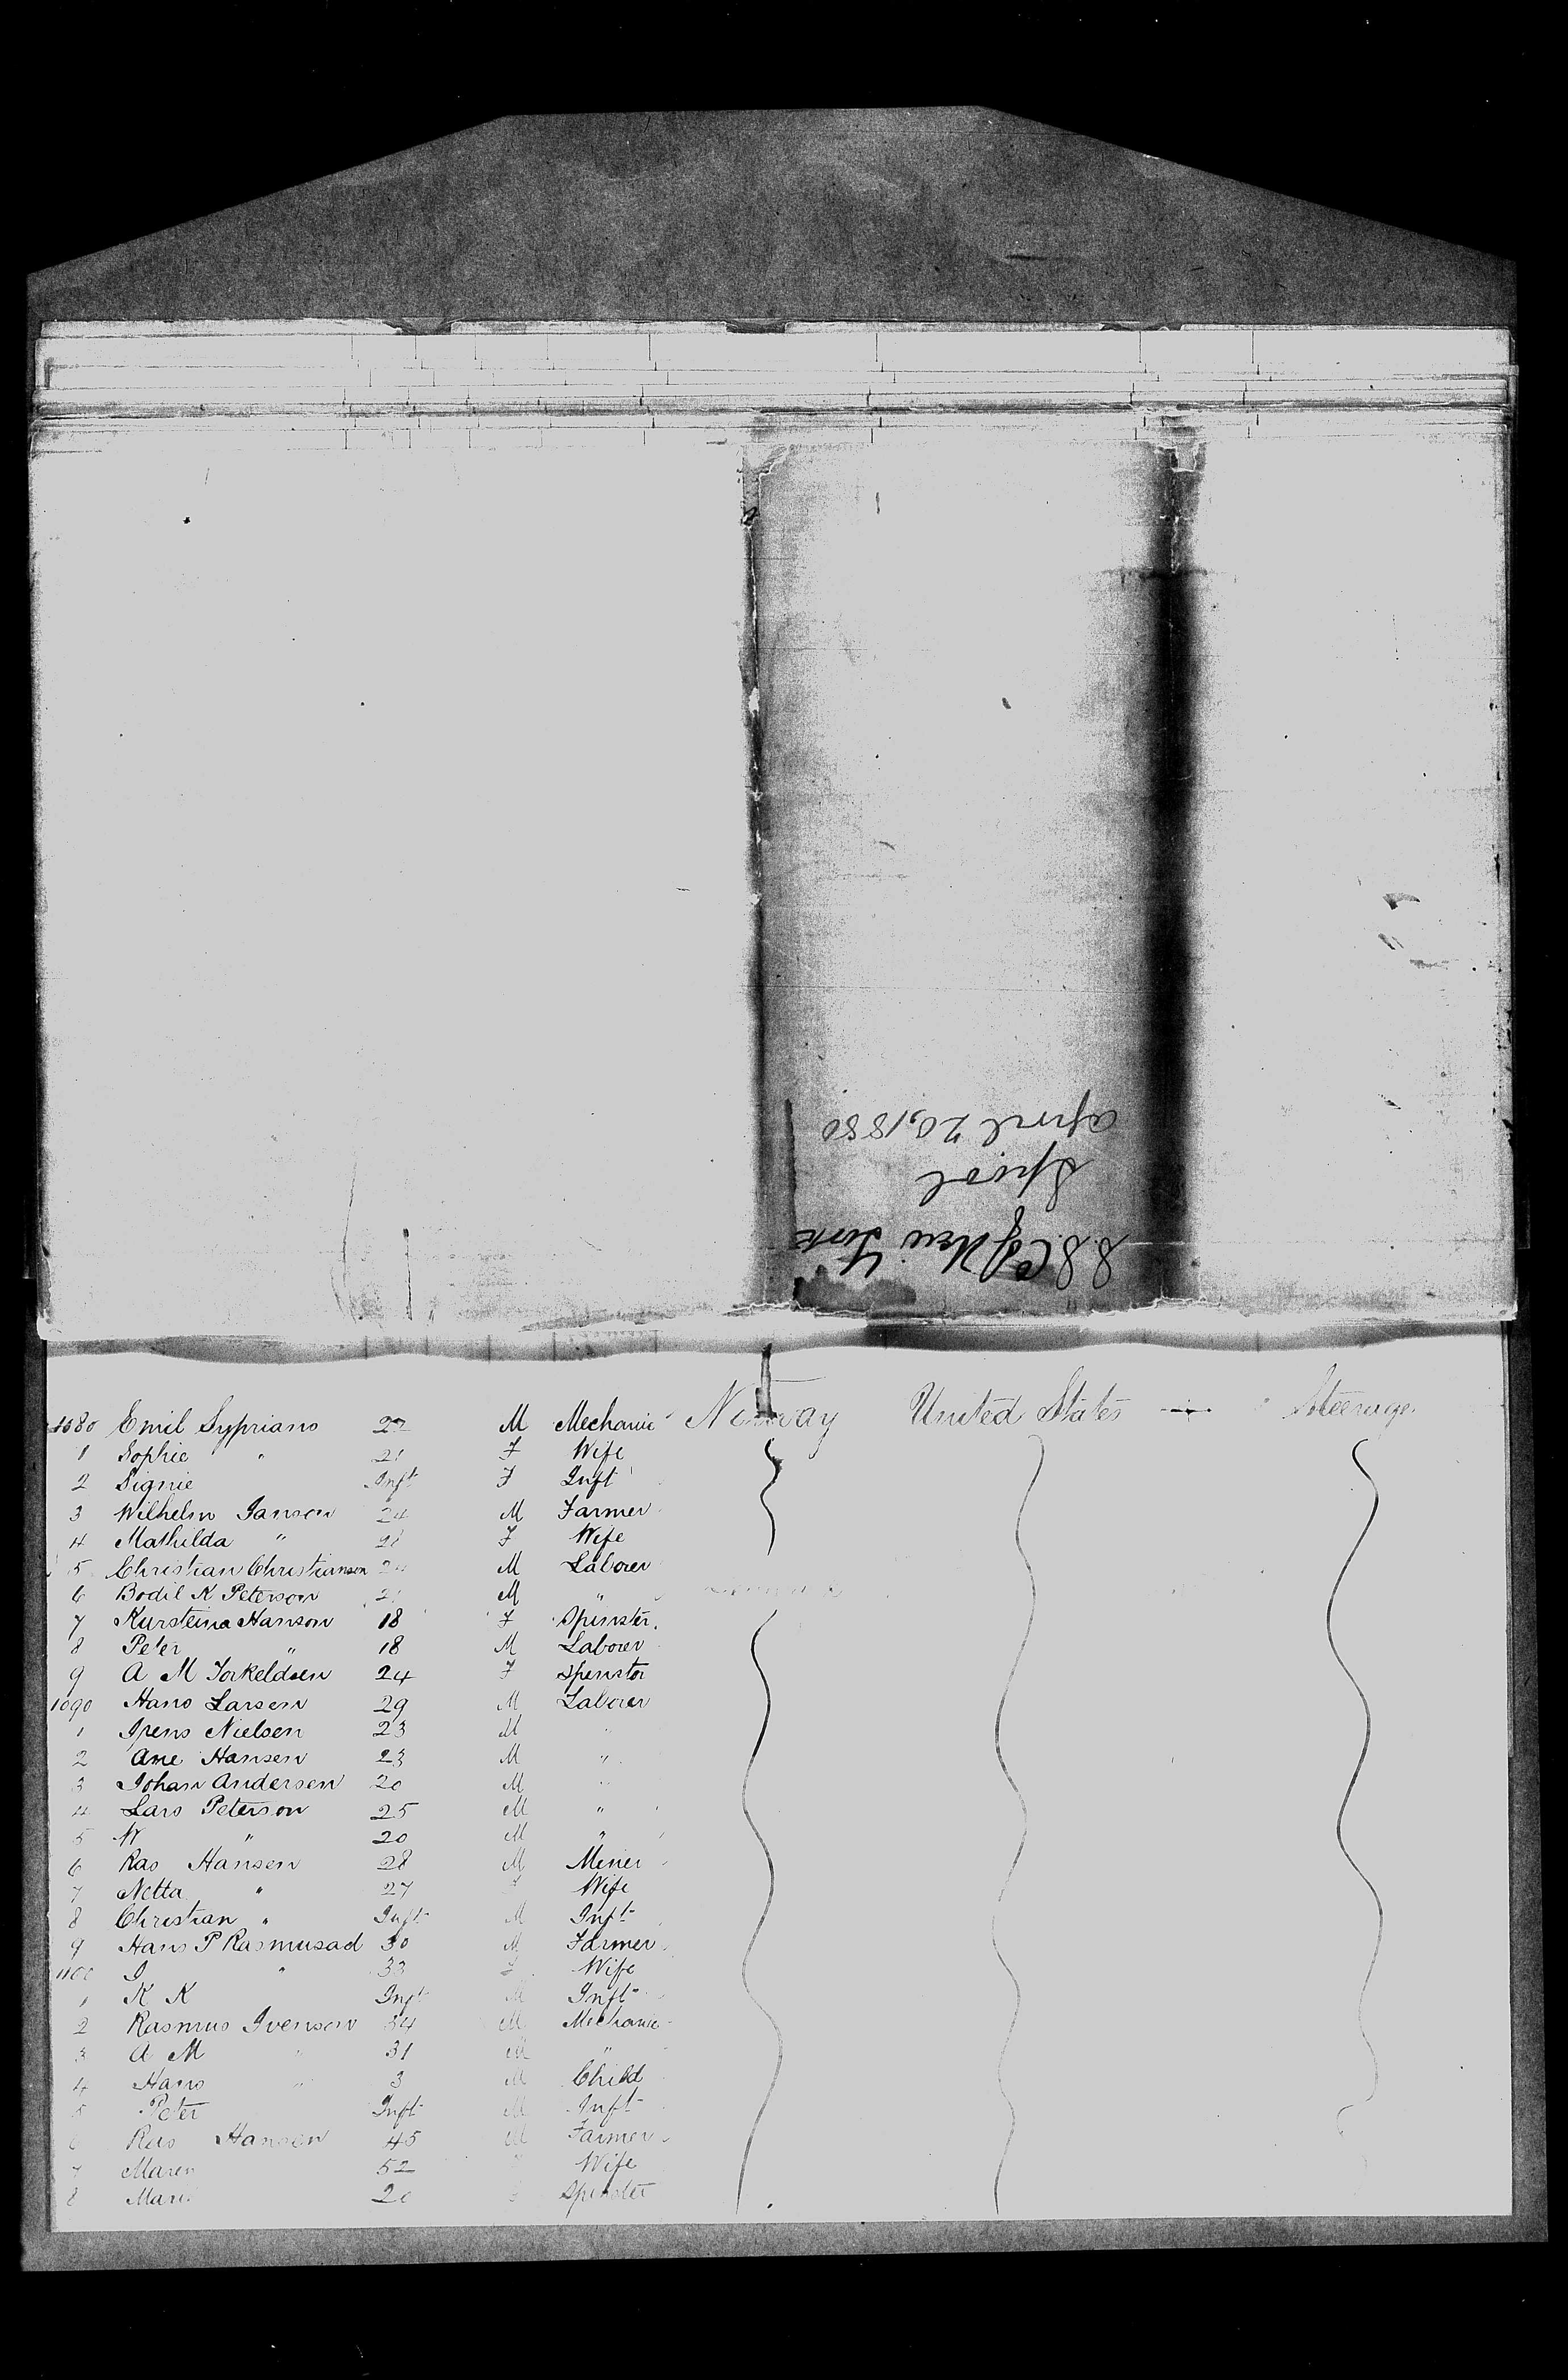 S.S. C of New York
Lpool
April 20, 1880
1080 Emil Sypriano 22 M Mechanic Norway United States Steerage
1 Sophie " 21 F Wife
2 Signie Inft F Inft
3 Wilhelm Janson 24 M Farmer
4 Mathilda " 21 F Wife
5 Christian Christianson 24 M Laborer
6 Bodil K Peterson M "
7 Kursteina Hanson 18 F Spinster
8 Peter " 18 M Laborer
9 A M Torkeldsen 24 F Spinster
1090 Hans Larsen 29 M Laborer
1 Jrens Nielsen 23 M "
2 Ane Hansen 23 M "
3 Johan Andersen 20 M "
4 Lars Peterson 25 M "
5 N " 20 M "
6 Ras Hansen 28 M Miner
7 Netta " 27 F Wife
8 Christian " Inft M Inft
9 Hans P Rasmusad 30 M Farmer
1100 J " 33 F Wife
1 K K Inft M Inft
2 Rasmus Ivenson 34 M Mechanic
3 A M " 31 M "
4 Hans " 3 M Child
5 Peter Inft M Inft
6 Ras Hansen 45 M Farmer
7 Maren 52 Wife
8 Mari 20 Spinster